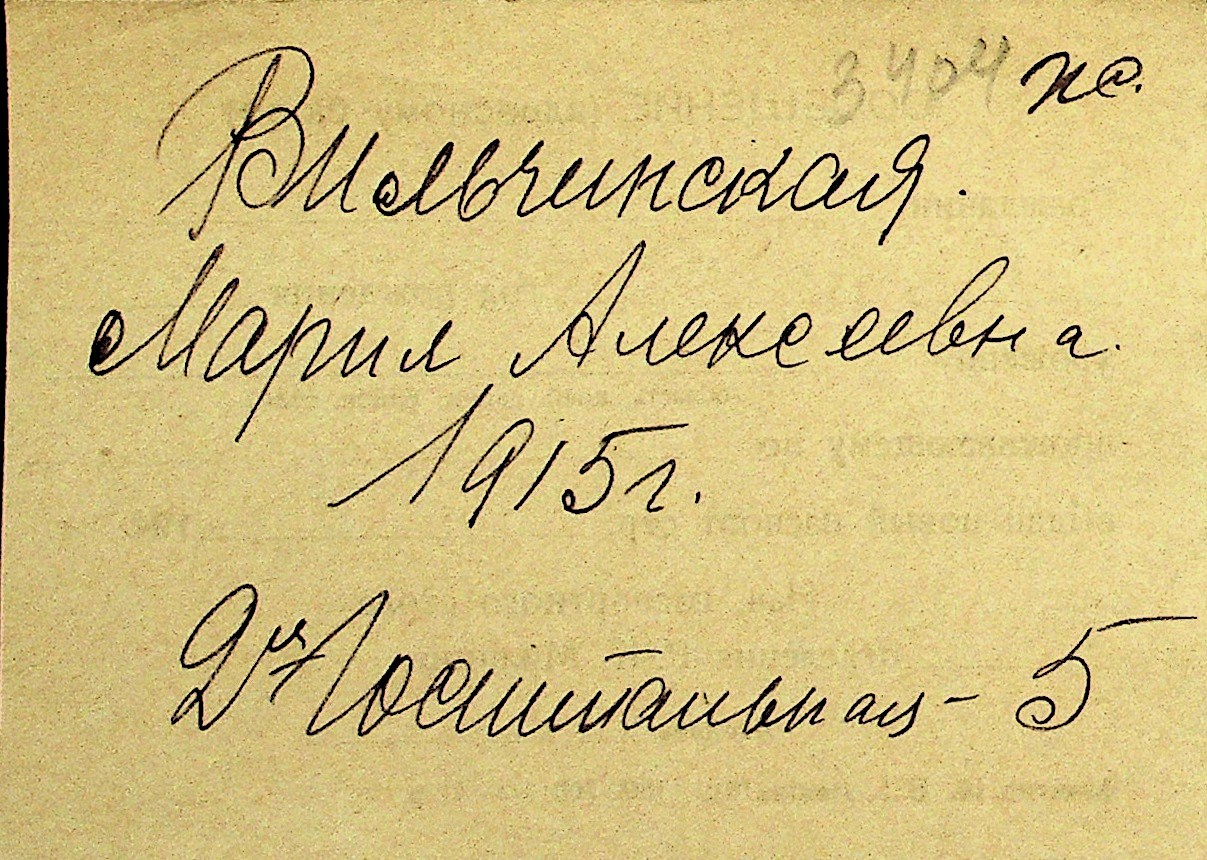 3404 по.
Вильчинская.
Мария Алексеевна.
1915 г.
2я Госпитальная - 5